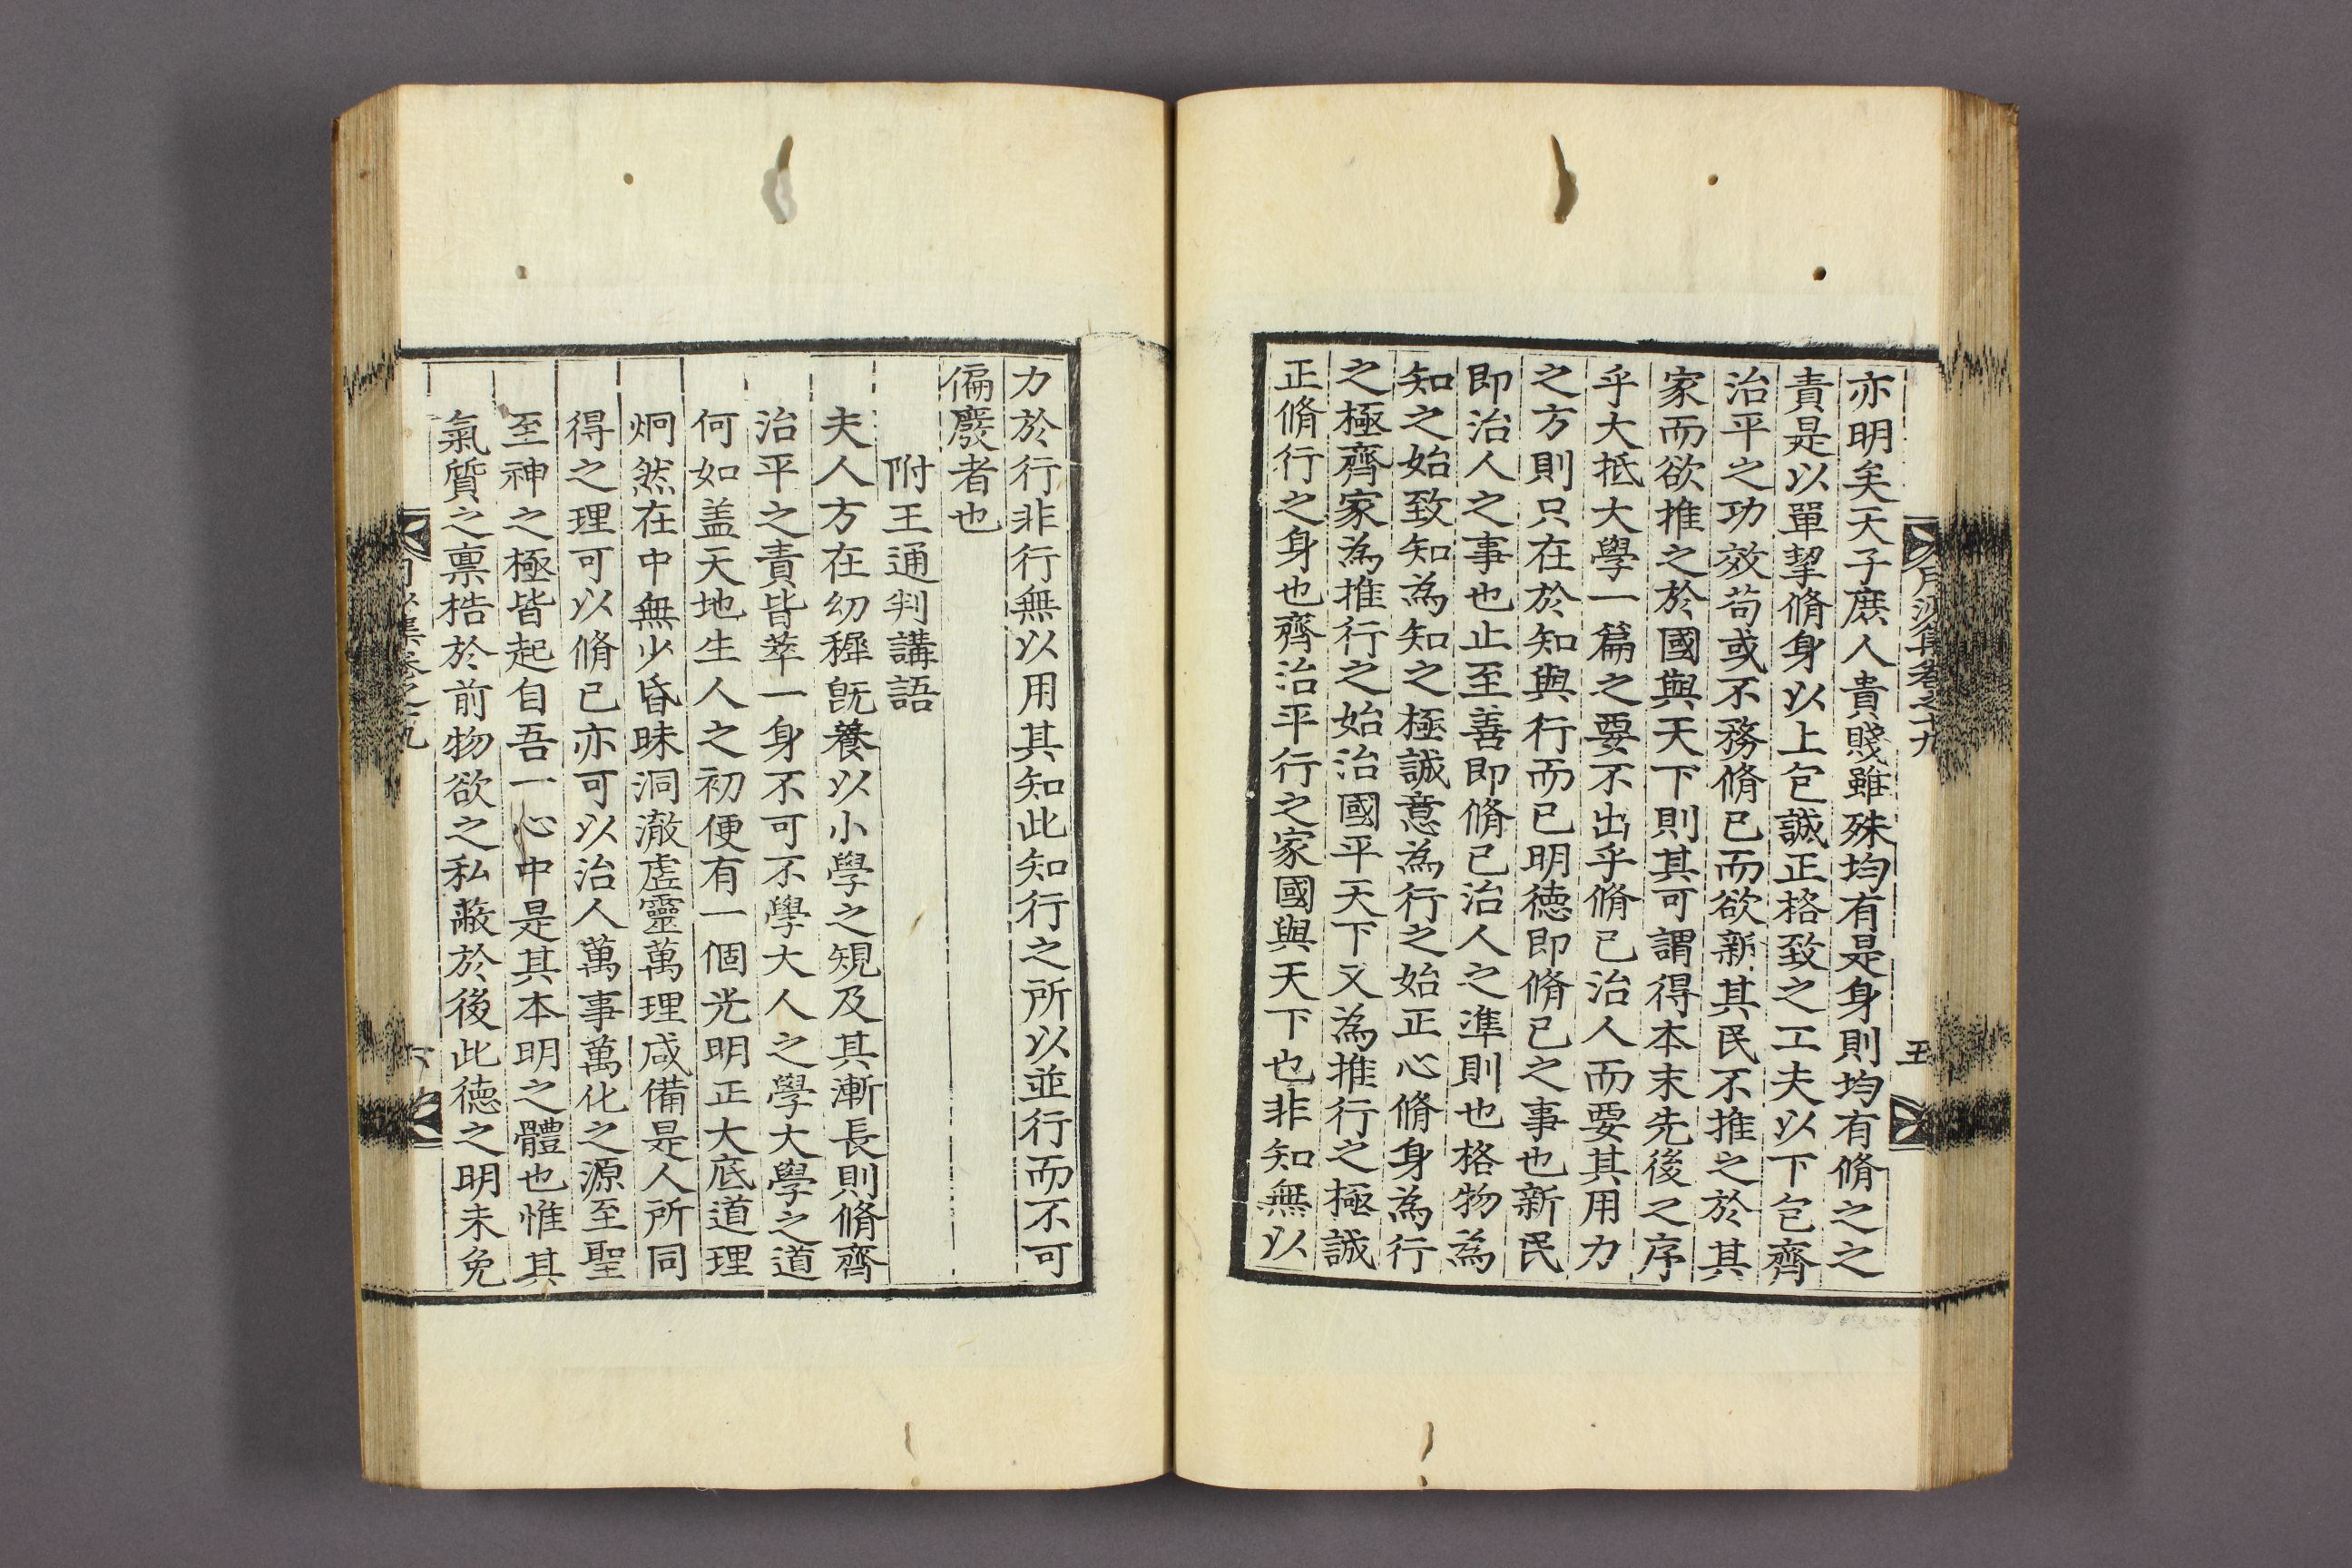 月沙集卷之十九
五
亦明矣天子庶人貴賤雖殊均有是身則均有脩之之
責是以單挈脩身以上包誠正格致之工夫以下包齊
治平之功效苟或不務脩已而欲新其民不推之於其
家而欲推之於國與天下則其可謂得本末先後之序
乎大抵大學一篇之要不出乎脩己治人而要其用力
之方則只在於知與行而已明德即脩已之事也新民
即治人之事也止至善即脩己治人之準則也格物為
知之始致知為知之極誠意為行之始正心脩身為行
之極齊家為推行之始治國平天下又為推行之極誠
正脩行之身也齊治平行之家國與天下也非知無以
力於行非行無以用其知此知行之所以並行而不可
偏廢者也
附王通判講語
夫人方在幼穉旣養以小學之規及其漸長則脩齊
治平之責皆萃一身不可不學大人之學大學之道
何如盖天地生人之初便有一個光明正大底道理
炯然在中無少昏昧洞澈虛靈萬理咸備是人所同
得之理可以脩已亦可以治人萬事萬化之源至聖
至神之極皆起自吾一心中是其本明之體也惟其
氣質之禀梏於前物欲之私蔽於後此德之明未免
集卷之九
六